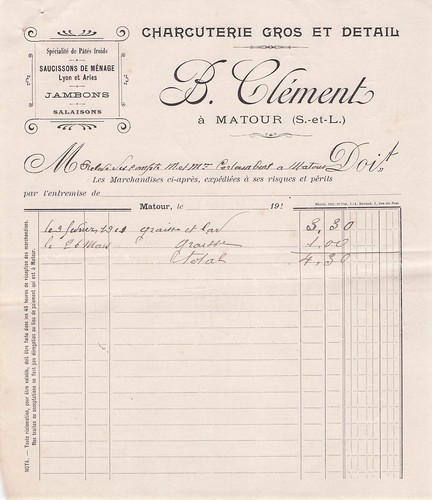 Spécialité de Pâtés froids
SAUCISSONS DE MÉNAGE
Lyon et Arles
JAMBONS
SALAISONS
CHARCUTERIE GROS ET DETAIL
B. Clément
à MATOUR (S.-et-L.)
M Relevé des compte M et Mme a Matour Doit
Les Marchandises ci-après, expédiées à ses risques et périls
par l'entremise de
Matour, le 19
le 3 février graisse et lard 3,30
le 26 Mars graisse 1,00
Total 4,30
NOTA. — Toute réclamation, pour être valable, doit être faite dans les 48 heures de réception des marchandises.
Nos traites ou acceptations ne font pas dérogation au lieu de paiement qui est à Matour.